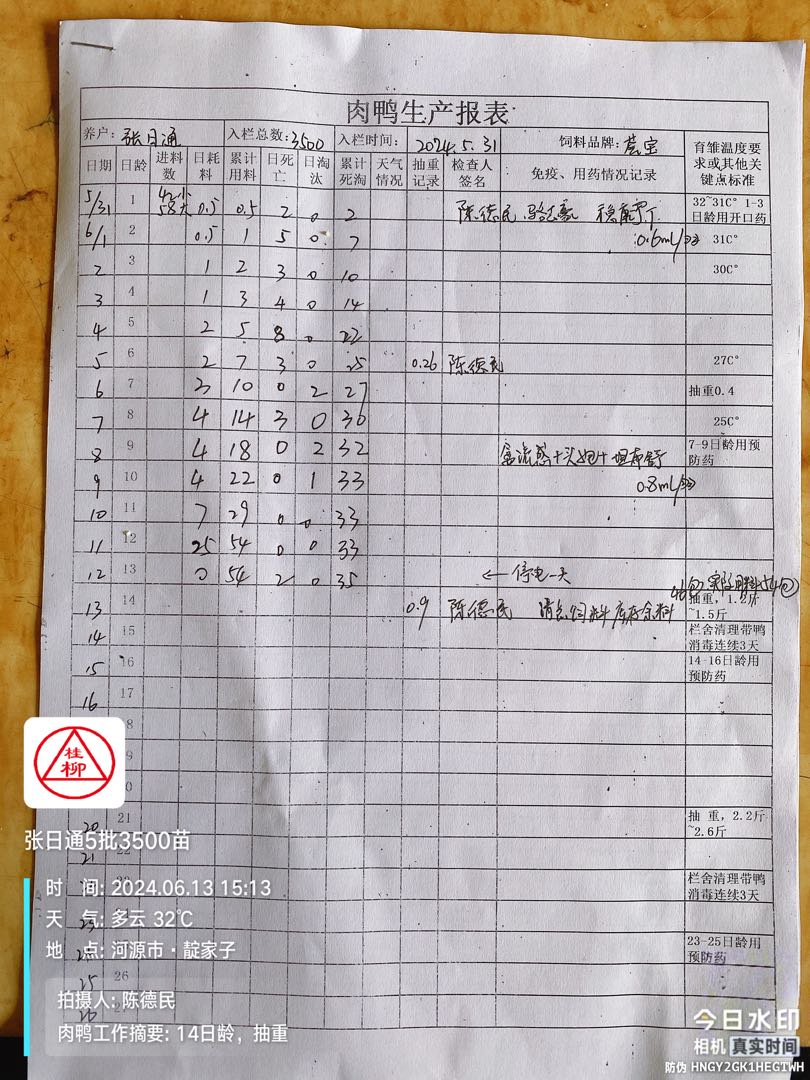 肉鸭生产报表
养户: 张日通 入栏总数: 3500 入栏时间: 2024.5.31 饲料品牌: 育雏温度要求或其他关键点标准
日期 日龄 进料数 日耗料 累计用料 日死亡 日淘汰 累计死淘 天气情况 抽重记录 检查人签名 免疫、用药情况记录
5/31 1 42小 58大 0.5 0.5 2 0 2 陈德民 32~31C° 1-3日龄用开口药
6/1 2 0.5 1 5 0 7 0.6ml/ 31C°
2 3 1 2 3 0 10 30C°
3 4 1 3 4 0 14
4 5 2 5 8 0 22
5 6 2 7 3 0 25 0.26 陈德民 27C°
6 7 3 10 0 2 27 抽重0.4
7 8 4 14 3 0 30 25C°
8 9 4 18 0 2 32 7-9日龄用预防药
9 10 4 22 0 1 33 0.8ml/
10 11 7 29 0 0 33
11 12 25 54 0 0 33
12 13 0 54 2 0 35 ← 停电一天
13 14 0.9 陈德民 抽重, 1.2斤~1.5斤
14 15 栏舍清理带鸭消毒连续3天
15 16 14-16日龄用预防药
16 17
8
9
0
20 21 抽 重, 2.2斤~2.6斤
21 22
栏舍清理带鸭消毒连续3天
23
23-25日龄用预防药
25 26
26
桂柳
张日通5批3500苗
时 间: 2024.06.13 15:13
天 气: 多云 32℃
地 点: 河源市·靛家子
拍摄人: 陈德民
肉鸭工作摘要: 14日龄，抽重
今日水印
相机 真实时间
防伪 HNGY2GK1HEGTWH